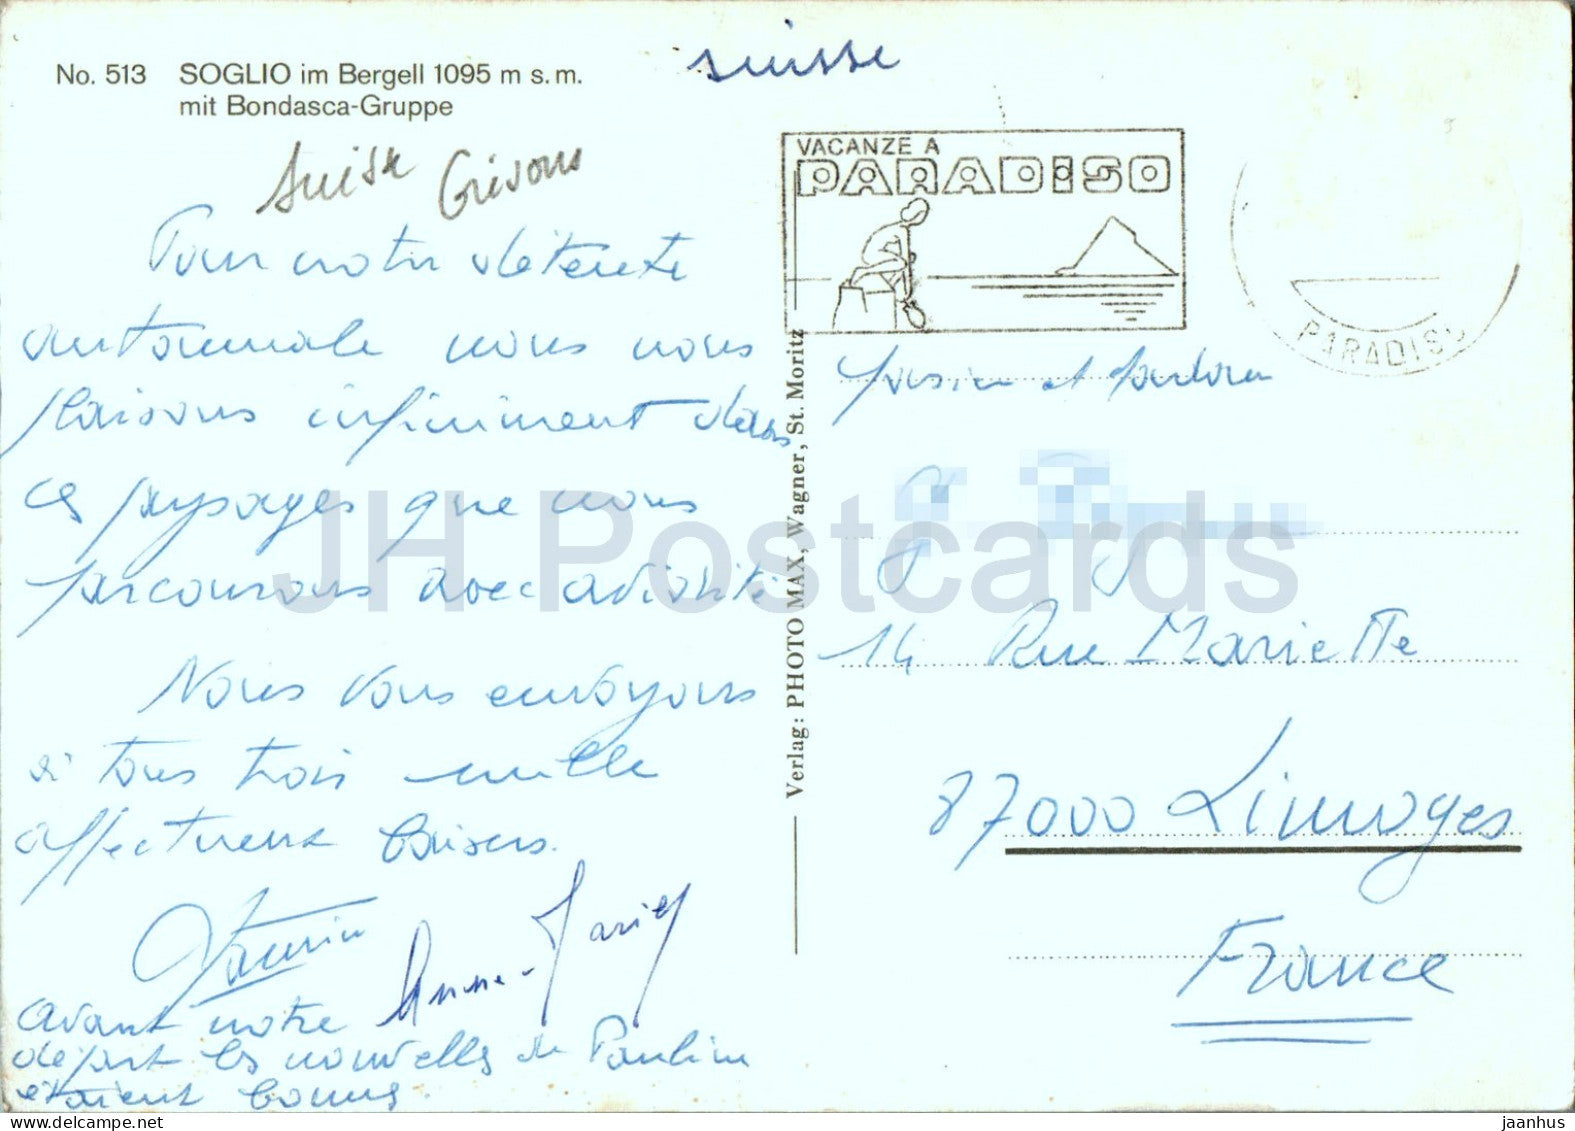 suisse
No. 513 SOGLIO im Bergell 1095 m s. m.
mit Bondasca-Gruppe
Suisse Grisons
Pour notre détente
automnale nous nous
plaisons infiniment dans
ces paysages que nous
parcourons avec avidité
Nous vous envoyons
à tous trois mille
affectueux baisers.
Anne-Marie
avant notre
départ les nouvelles de Pauline
étaient bonnes.
Verlag: PHOTO MAX, Wagner, St. Moritz
VACANZE A
PARADISO
PARADISO
et
14 Rue Mariette
87000 Limoges
France
JH Postcards
jaanhus ©www.delcampe.net